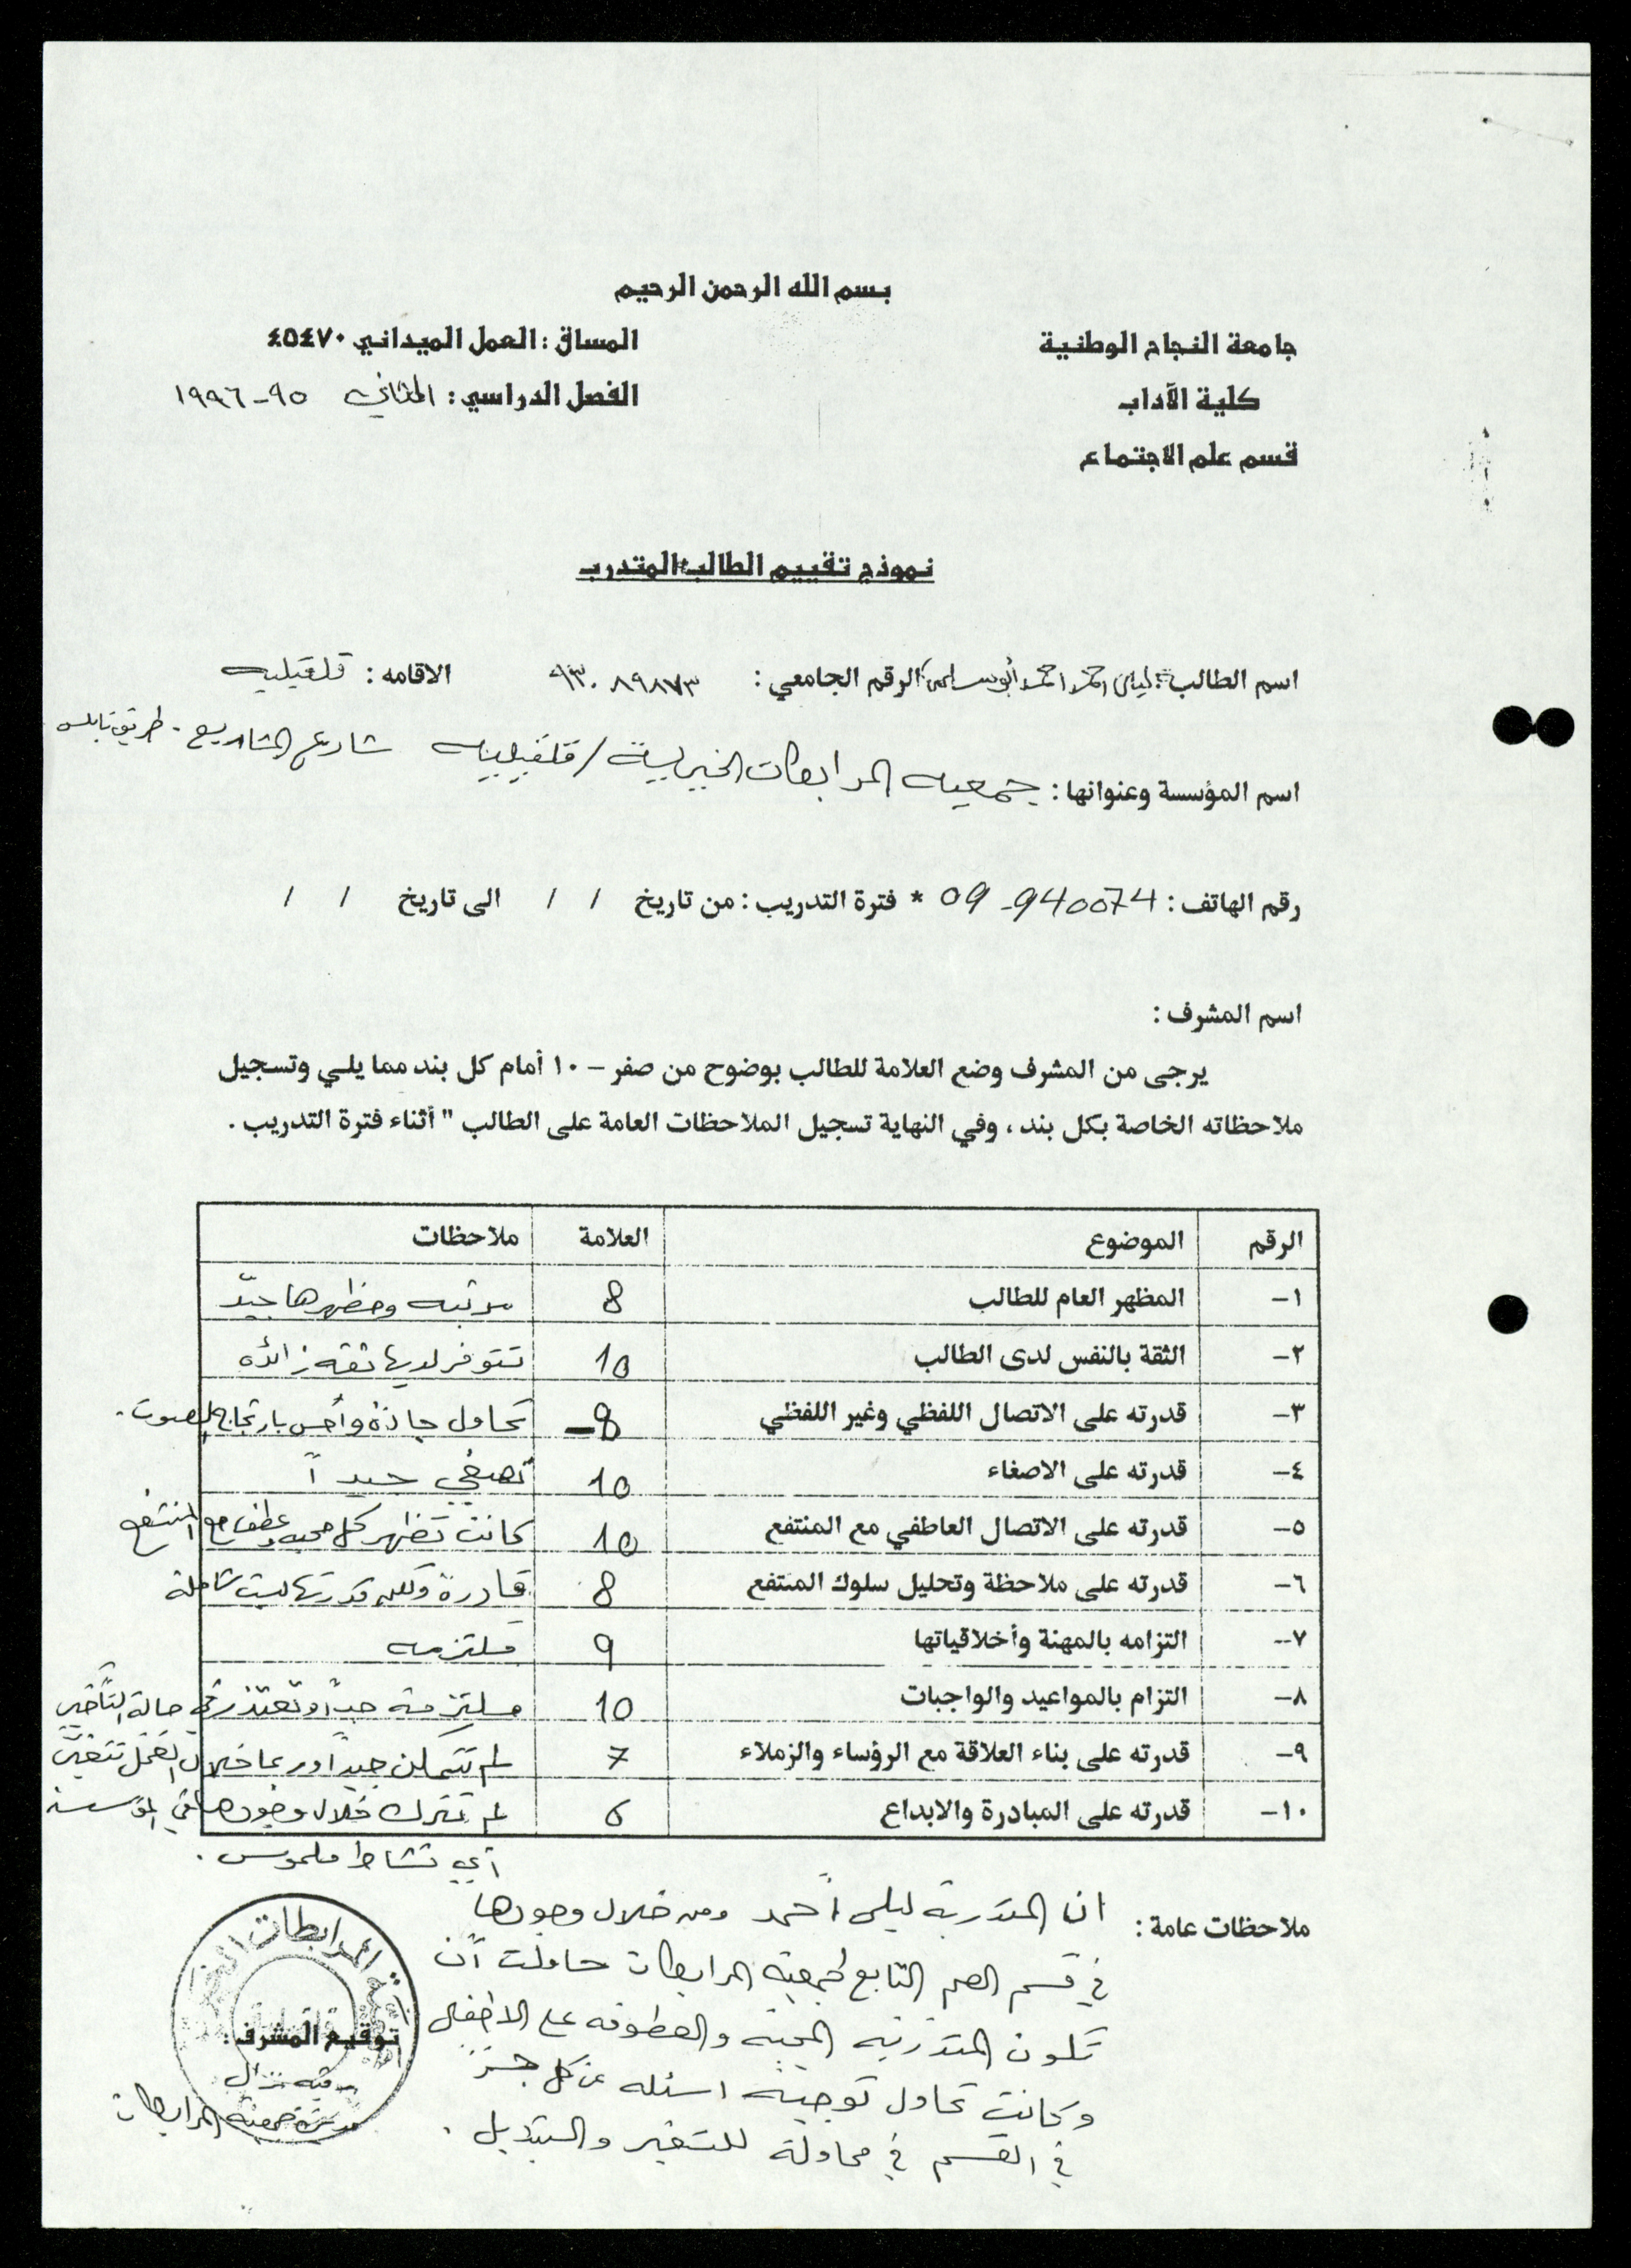 بسم الله الرحمن الرحيم
جامعة النجاح الوطنية
المساق : العمل الميداني ٤٥٤٧٠
كلية الآداب
الفصل الدراسي : الثاني ٩٥-١٩٩٦
قسم علم الاجتماع
نموذج تقييم الطالب المتدرب
اسم الطالب : ليلى احمد احمد أبو سلمى الرقم الجامعي : ٩٣٠٨٩٨٧٣ الاقامه : قلقيليه
اسم المؤسسة وعنوانها : جمعيه المرابطات الخيرية / قلقيليه شارع المشاريع - طريق نابلس
رقم الهاتف : 09-940074 * فترة التدريب : من تاريخ / / الى تاريخ / /
اسم المشرف :
يرجى من المشرف وضع العلامة للطالب بوضوح من صفر - ١٠ أمام كل بند مما يلي وتسجيل
ملاحظاته الخاصة بكل بند ، وفي النهاية تسجيل الملاحظات العامة على الطالب " أثناء فترة التدريب .
الرقم الموضوع العلامة ملاحظات
١- المظهر العام للطالب 8 مرتبه ومظهرها جيّد
٢- الثقة بالنفس لدى الطالب 10 تتوفر لديها ثقه زائده
٣- قدرته على الاتصال اللفظي وغير اللفظي 8 تحاول جادة وأحس بارتجاج الصوت .
٤- قدرته على الاصغاء 10 تصغي جيداً
٥- قدرته على الاتصال العاطفي مع المنتفع 10 كانت تظهر كل محبه وعطف مع المنتفع
٦- قدرته على ملاحظة وتحليل سلوك المنتفع 8 قادرة ولكن قدرتها ليست شاملة
٧- التزامه بالمهنة وأخلاقياتها 9 ملتزمه
٨- التزام بالمواعيد والواجبات 10 ملتزمة جداً وتعتذر في حالة التأخير
٩- قدرته على بناء العلاقة مع الرؤساء والزملاء 7 لم تتمكن جيداً وربما خلال العمل تتغير
١٠- قدرته على المبادرة والابداع 6 لم تترك خلال وجودها في المؤسسة
أي نشاط ملموس .
ملاحظات عامة : ان المتدربة ليلى أحمد ومن خلال وجودها
في قسم الصم التابع لجمعية المرابطات حاولت أن
تكون المتدربه المحبه والعطوفه على الاطفال
وكانت تحاول توجيه اسئله عن كل جزء
في القسم في محاولة للتغير والتبديل .
جمعية المرابطات الخيرية
توقيع المشرف :
مديرة جمعية المرابطات